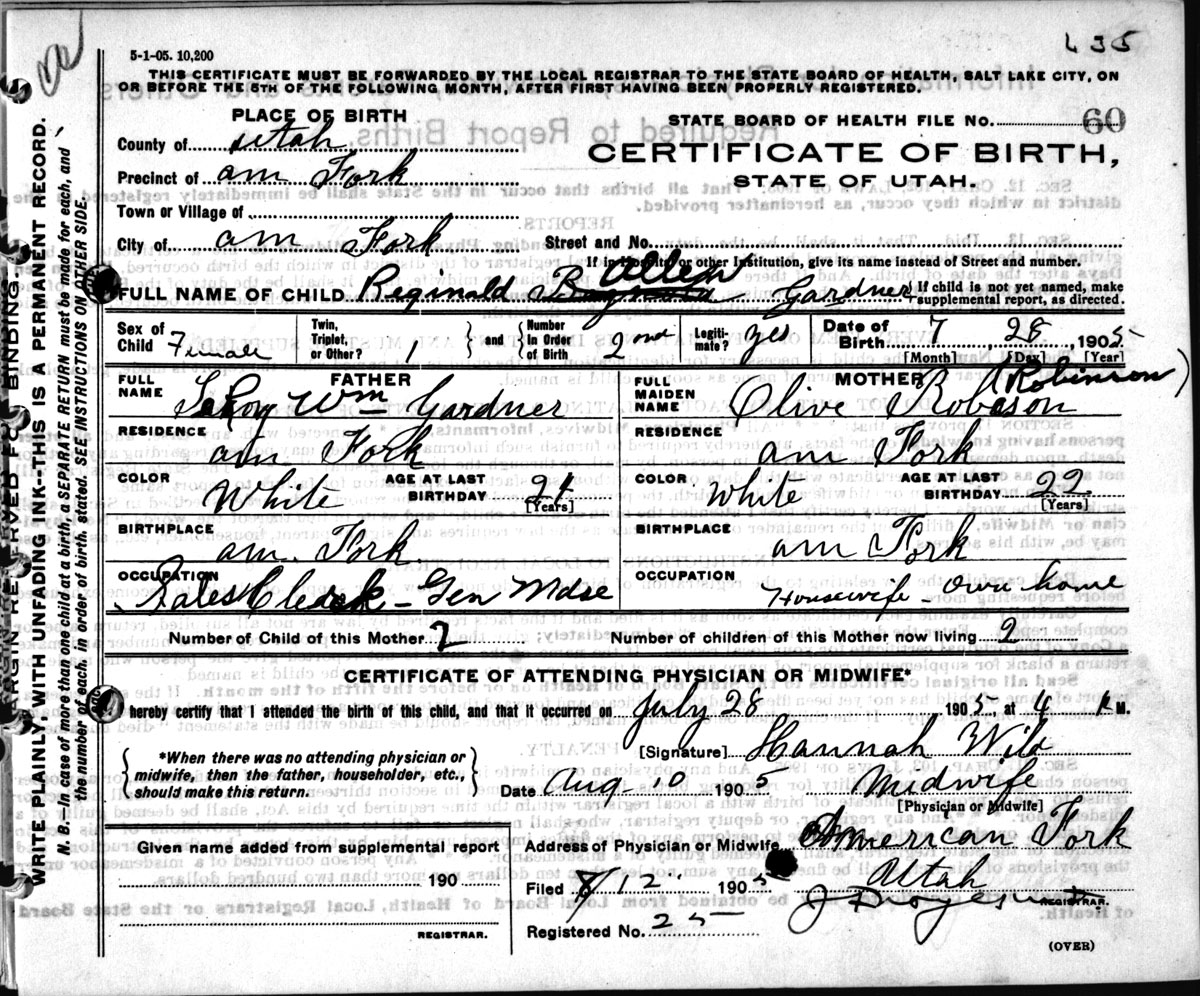 435
5-1-05. 10,200
THIS CERTIFICATE MUST BE FORWARDED BY THE LOCAL REGISTRAR TO THE STATE BOARD OF HEALTH, SALT LAKE CITY, ON
OR BEFORE THE 5TH OF THE FOLLOWING MONTH, AFTER FIRST HAVING BEEN PROPERLY REGISTERED.
PLACE OF BIRTH
STATE BOARD OF HEALTH FILE NO. 60
County of Utah
CERTIFICATE OF BIRTH,
Precinct of Am Fork
STATE OF UTAH.
Town or Village of
City of Am Fork Street and No.
If in Hospital or other Institution, give its name instead of Street and number.
FULL NAME OF CHILD Reginald Allen Gardner
If child is not yet named, make
supplemental report, as directed.
Sex of Child Female Twin, Triplet, or Other? 1 and Number In Order of Birth 2nd Legiti-mate? yes Date of Birth 7 28 1905
[Month] [Day] [Year]
FATHER
FULL NAME LeRoy Wm Gardner
RESIDENCE Am Fork
COLOR White AGE AT LAST BIRTHDAY 24
[Years]
BIRTHPLACE Am. Fork
OCCUPATION Sales Clerk - Gen Mdse
MOTHER
FULL MAIDEN NAME Olive R Robeson (Robinson)
RESIDENCE Am Fork
COLOR White AGE AT LAST BIRTHDAY 22
[Years]
BIRTHPLACE Am Fork
OCCUPATION Housewife - Own home
Number of Child of this Mother 2 Number of children of this Mother now living 2
CERTIFICATE OF ATTENDING PHYSICIAN OR MIDWIFE*
hereby certify that I attended the birth of this child, and that it occurred on July 28 1905 at 4 M.
*When there was no attending physician or
midwife, then the father, householder, etc.,
should make this return.
[Signature] Hannah Wild
Date Aug-10 1905 Midwife
[Physician or Midwife]
Given name added from supplemental report
190
REGISTRAR.
Address of Physician or Midwife American Fork
Utah
Filed 8/12 1905
REGISTRAR.
Registered No. 25
(OVER)
MARGIN RESERVED FOR BINDING
WRITE PLAINLY, WITH UNFADING INK--THIS IS A PERMANENT RECORD.
N. B.—In case of more than one child at a birth, a SEPARATE RETURN must be made for each, and
the number of each, in order of birth, stated. SEE INSTRUCTIONS ON OTHER SIDE.